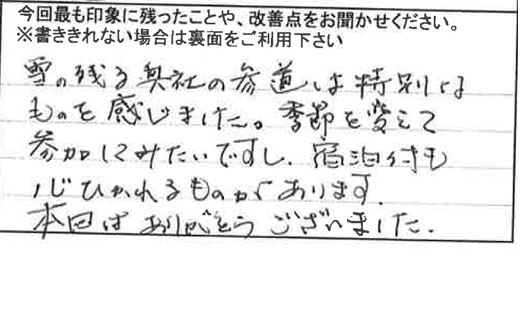 今回最も印象に残ったことや、改善点をお聞かせください。
※書ききれない場合は裏面をご利用下さい
雪の残る奥社の参道は特別な
ものを感じました。季節を変えて
参加してみたいですし、宿泊付も
心ひかれるものがあります。
本日はありがとうございました。